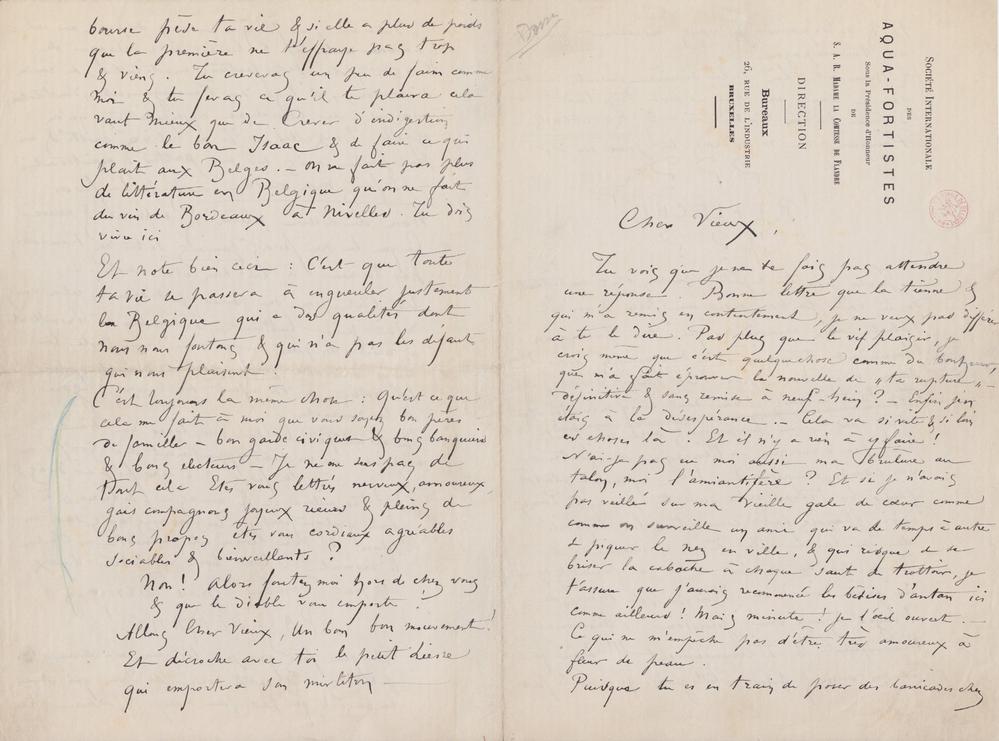 bourse pèse ta vie & si elle a plus de poids
que la première ne t'effraye pas trop
& viens. Tu creveras un peu de faim comme
moi & tu feras ce qu'il te plaira cela
vaut mieux que de crever d'indigestion
comme le bon Isaac & de faire ce qui
plait aux Belges. – on ne fait pas plus
de littérature en Belgique qu'on ne fait
du vin de Bordeaux à Nivelles. Tu dois
vivre ici
Et note bien ceci : C'est que toute
ta vie se passera à engueuler justement
la Belgique qui a des qualités dont
nous nous foutons & qui n'a pas les défauts
qui nous plaisent.
C'est toujours la même chose : Qu'est ce que
cela me fait à moi que vous soyez bon pères
de familles – bon garde civiques & bons banquiers
& bons electeurs – Je ne me sens pas de
tout cela Etes vous lettrés nerveux, amoureux,
gais compagnons joyeux rieurs & pleins de
bons propos êtes vous cordiaux agréables
sociables & bienveillants ?
Non ! Alors foutez moi hors de chez vous
& que le diable vous emporte.
Allons Cher Vieux, Un bon bon mouvement !
Et décroche avec toi le petit
qui emportera son mirliton
SOCIÉTÉ INTERNATIONALE
DES
AQUA-FORTISTES
Sous la Présidence d'Honneur
DE
S. A. R. MADAME LA COMTESSE DE FLANDRE
DIRECTION
Bureaux
26, RUE DE L'INDUSTRIE
BRUXELLES
Cher Vieux,
Tu vois que je ne te fais pas attendre
une réponse. Bonne lettre que la tienne &
qui m'a remis en contentement, je ne veux pas différer
à te le dire. Pas plus que le vif plaisir, je
crois même que c'est quelquechose comme du bonheur,
que m'a fait éprouver la nouvelle de „ta rupture" –
définitive & sans remise à neuf – hein ? – Enfin j'en
étais à la désespérance. – Cela va si vite & si loin
ces choses là. Et il n'y a rien à y faire !
N'ai-je pas eu moi aussi ma brulure au
talon, moi l'amiantifère ? Et si je n'avais
pas veillé sur ma vieille gale de cœur comme
comme on surveille un ami qui va de temps à autre
se piquer le nez en ville, & qui risque de se
briser la caboche à chaque saut de trottoir, je
t'assure que j'aurois recommencé les bêtises d'antan ici
comme ailleurs ! Mais minute ! je l'œil ouvert. –
Ce qui ne m'empêche pas d'être très amoureux à
fleur de peau.
Puisque tu es en train de poser des barricades chez